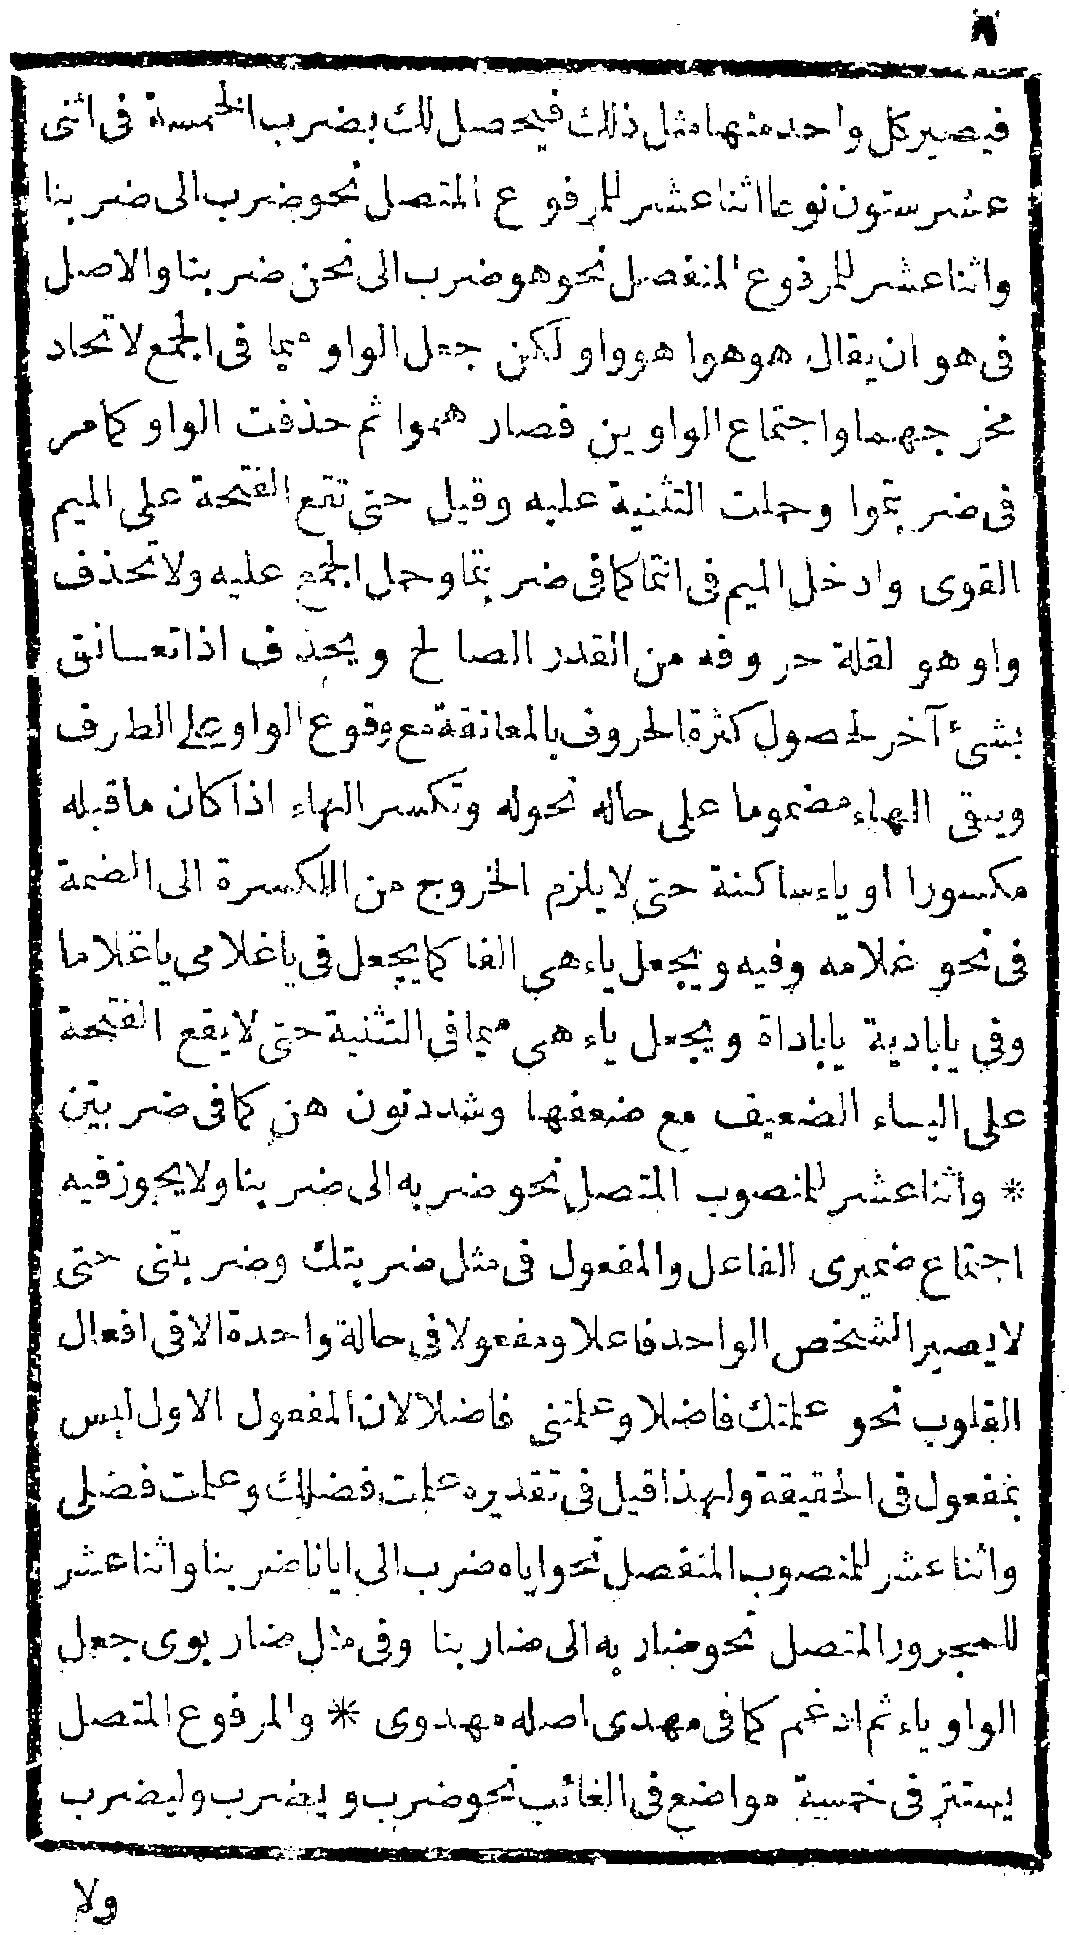 ٨
فيصير كل واحد منها مثل ذلك فيحصل لك بضرب الخمسة فى اثنى
عشر ستون نوعا اثنا عشر للمرفوع المتصل نحو ضرب الى ضربنا
واثنا عشر للمرفوع المنفصل نحو هو ضرب الى نحن ضربنا والاصل
فى هو ان يقال هو هوا هووا ولكن جعل الواو ميما فى الجمع لاتحاد
مخرجهما واجتماع الواوين فصار هموا ثم حذفت الواو كما مر
فى ضربتموا وحملت التثنية عليه وقيل حتى تقع الفتحة على الميم
القوى وادخل الميم فى انتما كما فى ضربتما وحمل الجمع عليه ولا تحذف
واو هو لقلة حروفه من القدر الصالح ويحذف اذا تعانق
بشئ آخر لحصول كثرة الحروف بالمعانقة مع وقوع الواو على الطرف
ويبقى الهاء مضموما على حاله نحو له وتكسر الهاء اذا كان ما قبله
مكسورا او ياء ساكنة حتى لا يلزم الخروج من الكسرة الى الضمة
فى نحو غلامه وفيه ويجعل ياء هى الفا كما يجعل فى يا غلامى يا غلاما
وفى يا بادية يا باداة ويجعل ياء هى ميما فى التثنية حتى لا يقع الفتحة
على الياء الضعيف مع ضعفها وشدد نون هن كما فى ضربتن
* واثنا عشر للمنصوب المتصل نحو ضربه الى ضربنا ولا يجوز فيه
اجتماع ضميرى الفاعل والمفعول فى مثل ضربتك وضربتنى حتى
لا يصير الشخص الواحد فاعلا ومفعولا فى حالة واحدة الا فى افعال
القلوب نحو علمتك فاضلا وعلمتنى فاضلا لان المفعول الاول ليس
بمفعول فى الحقيقة ولهذا قيل فى تقديره علمت فضلك وعلمت فضلى
واثنا عشر للمنصوب المنفصل نحو اياه ضرب الى ايانا ضربنا واثنا عشر
للمجرور المتصل نحو ضاربه الى ضاربنا وفى مثل ضاربوى جعل
الواو ياء ثم ادغم كما فى مهدى اصله مهدوى * والمرفوع المتصل
يستتر فى خمسة مواضع فى الغائب نحو ضرب ويضرب وليضرب
ولا